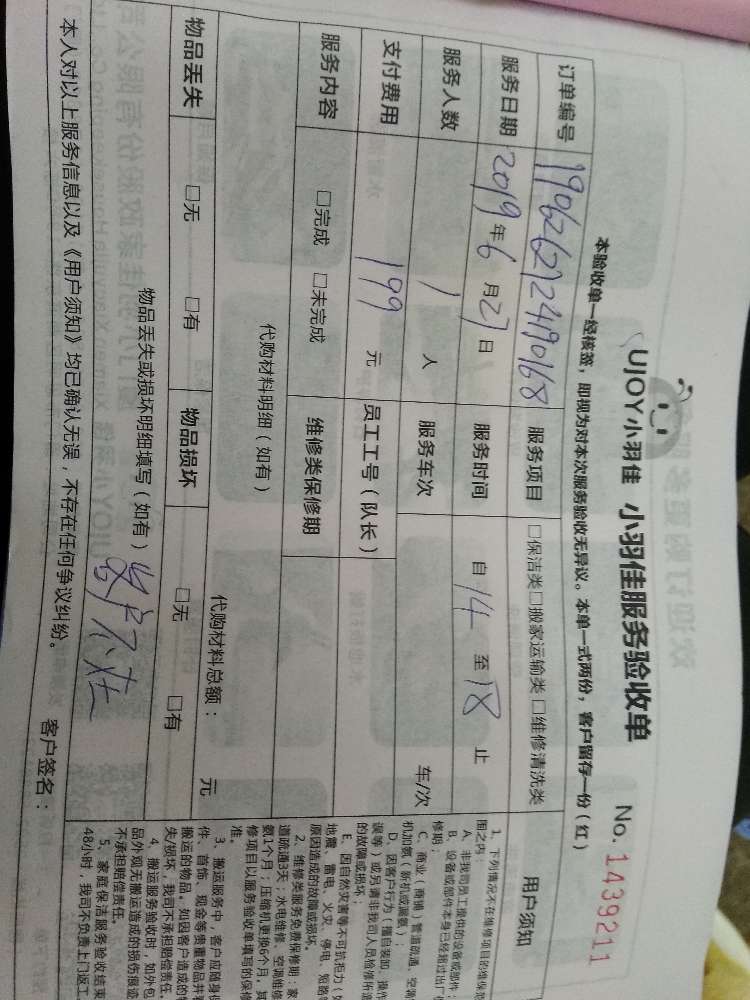 UJOY小羽佳 小羽佳服务验收单 No. 1439211
本验收单一经核签，即视为对本次服务验收无异议。本单一式两份，客户留存一份（红）
订单编号 190626212490168 服务项目 □保洁类□搬家运输类□维修清洗类
服务日期 2019年6月27日 服务时间 自14至18止
服务人数 1人 服务车次 车/次
支付费用 199元 员工工号（队长）
服务内容 □完成 □未完成 维修类保修期
代购材料明细（如有） 代购材料总额： 元
物品丢失 □无 □有 物品损坏 □无 □有
物品丢失或损坏明细填写（如有）
客户不在
本人对以上服务信息以及《用户须知》均已确认无误，不存在任何争议纠纷。 客户签名：
用户须知
1、下列情况不在维修项目的维保范
围之内：
A、非我司员工提供的设备或部件；
B、设备或部件本身已经超过出厂保
修期；
C、商业（商铺）管道疏通、空调
机加氨（新机或漏氨）；
D、因客户行为（擅自装卸、操作
误等）或另请非我司人员检修所造
的故障或损坏；
E、因自然灾害等不可抗拒力（如
地震、雷电、火灾、停电、短路等
原因造成的故障或损坏。
2、维修类服务免费保修期：家
道疏通3天；水电维修、空调维修
氨1个月；压缩机更换6个月，其
修项目以服务验收单填写的保修
准。
3、搬运服务中，客户应随身保
件、首饰、现金等贵重物品并
搬运的物品。如因客户造成的物
失/损坏，我司不承担赔偿责任。
4、搬运服务验收时，如外包
品外观无搬运造成的损伤痕迹
不承担赔偿责任。
5、家庭保洁服务验收结束
48小时，我司不负责上门返工